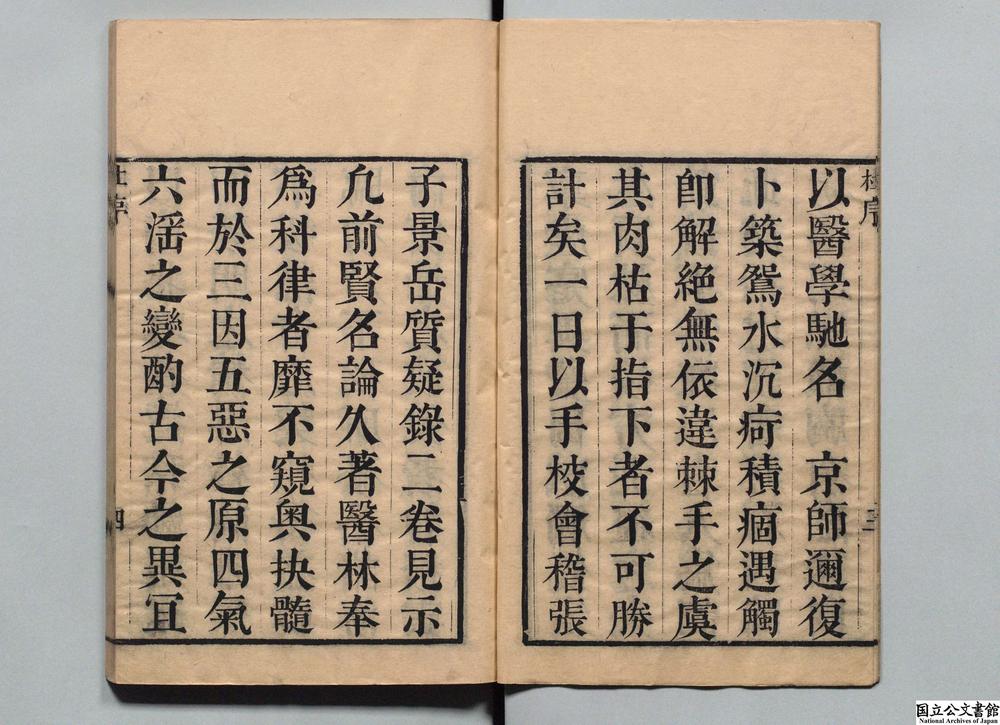 以醫學馳名　京師邇復
卜築鴛水沉疴積痼遇觸
卽解絶無依違棘手之虞
其肉枯于指下者不可勝
計矣一日以手校會稽張
子景岳質疑錄二卷見示
凢前賢名論久著醫林奉
爲科律者靡不窺奥抉髓
而於三因五惡之原四氣
六滛之變酌古今之異冝
序
三
四
国立公文書館
National Archives of Japan